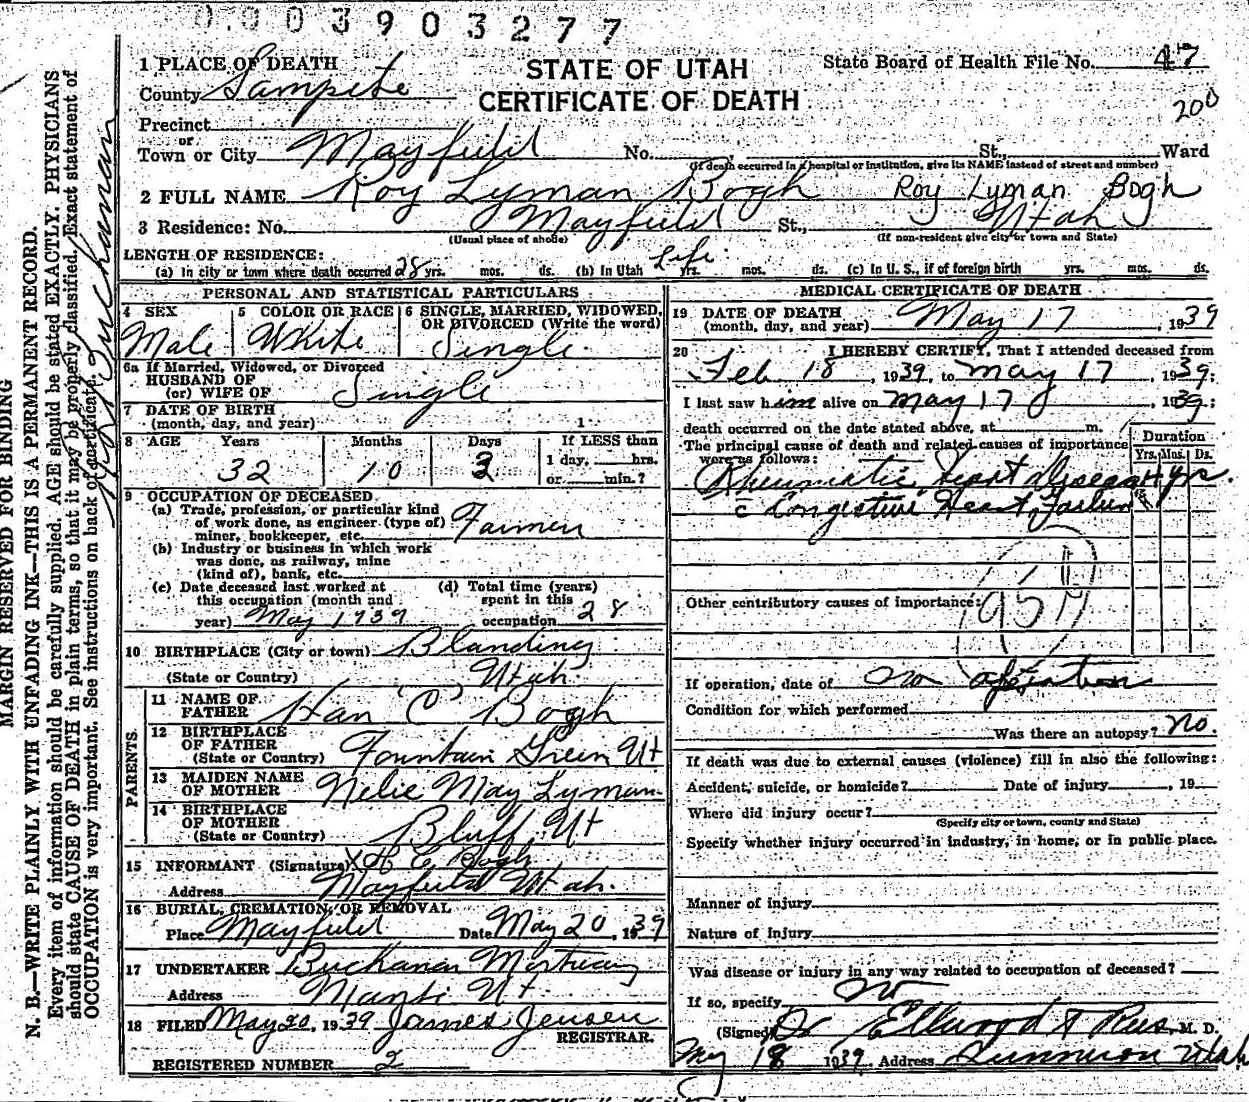 0.003903277
1 PLACE OF DEATH
STATE OF UTAH
CERTIFICATE OF DEATH
State Board of Health File No. 47
200
County Sampete
Precinct
or
Town or City Mayfield No. St., Ward
(If death occurred in a hospital or institution, give its NAME instead of street and number)
2 FULL NAME Roy Lyman Bogh Roy Lyman Bogh
3 Residence: No. Mayfield St., Utah
(Usual place of abode) (If non-resident give city or town and State)
LENGTH OF RESIDENCE:
(a) In city or town where death occurred 28 yrs. mos. ds. (b) In Utah life yrs. mos. ds. (c) In U. S., if of foreign birth yrs. mos. ds.
PERSONAL AND STATISTICAL PARTICULARS
4 SEX
Male
5 COLOR OR RACE
White
6 SINGLE, MARRIED, WIDOWED,
OR DIVORCED (Write the word)
Single.
6a If Married, Widowed, or Divorced
HUSBAND OF
(or) WIFE OF Single
7 DATE OF BIRTH
(month, day, and year) 1
8 AGE Years Months Days If LESS than
32 10 3 1 day, hrs.
or min.?
9 OCCUPATION OF DECEASED
(a) Trade, profession, or particular kind
of work done, as engineer (type of)
miner, bookkeeper, etc. Farmer
(b) Industry or business in which work
was done, as railway, mine
(kind of), bank, etc.
(c) Date deceased last worked at
this occupation (month and
year) May 1939
(d) Total time (years)
spent in this
occupation 28
10 BIRTHPLACE (City or town) Blanding
(State or Country) Utah.
PARENTS.
11 NAME OF
FATHER Han C Bogh
12 BIRTHPLACE
OF FATHER
(State or Country) Fountain Green Ut
13 MAIDEN NAME
OF MOTHER Nelie May Lyman
14 BIRTHPLACE
OF MOTHER
(State or Country) Bluff, Ut
15 INFORMANT (Signature) X H C Bogh
Address Mayfield Utah.
16 BURIAL, CREMATION, OR REMOVAL
Place Mayfield Date May 20, 1939
17 UNDERTAKER Buckanan Mortuary
Address Manti Ut.
18 FILED May 20, 1939 James Jensen
REGISTRAR.
REGISTERED NUMBER 2
MEDICAL CERTIFICATE OF DEATH
19 DATE OF DEATH
(month, day, and year) May 17, 1939
20 I HEREBY CERTIFY, That I attended deceased from
Feb 18, 1939, to May 17, 1939;
I last saw him alive on May 17, 1939;
death occurred on the date stated above, at m.
The principal cause of death and related causes of importance
were as follows:
Duration
Yrs. Mos. Ds.
Rheumatic heart disease 4 yrs.
c Congestive Heart Failure
95
Other contributory causes of importance:
If operation, date of no operation
Condition for which performed
Was there an autopsy? no.
If death was due to external causes (violence) fill in also the following:
Accident, suicide, or homicide? Date of injury , 19
Where did injury occur?
(Specify city or town, county and State)
Specify whether injury occurred in industry, in home, or in public place.
Manner of injury
Nature of injury
Was disease or injury in any way related to occupation of deceased?
If so, specify no
(Signed) Dr Ellwood Rees, M. D.
May 18 1939 Address Gunnison Utah
MARGIN RESERVED FOR BINDING
N. B.—WRITE PLAINLY WITH UNFADING INK—THIS IS A PERMANENT RECORD.
Every item of information should be carefully supplied. AGE should be stated EXACTLY. PHYSICIANS
should state CAUSE OF DEATH in plain terms, so that it may be properly classified. Exact statement of
OCCUPATION is very important. See instructions on back of certificate.